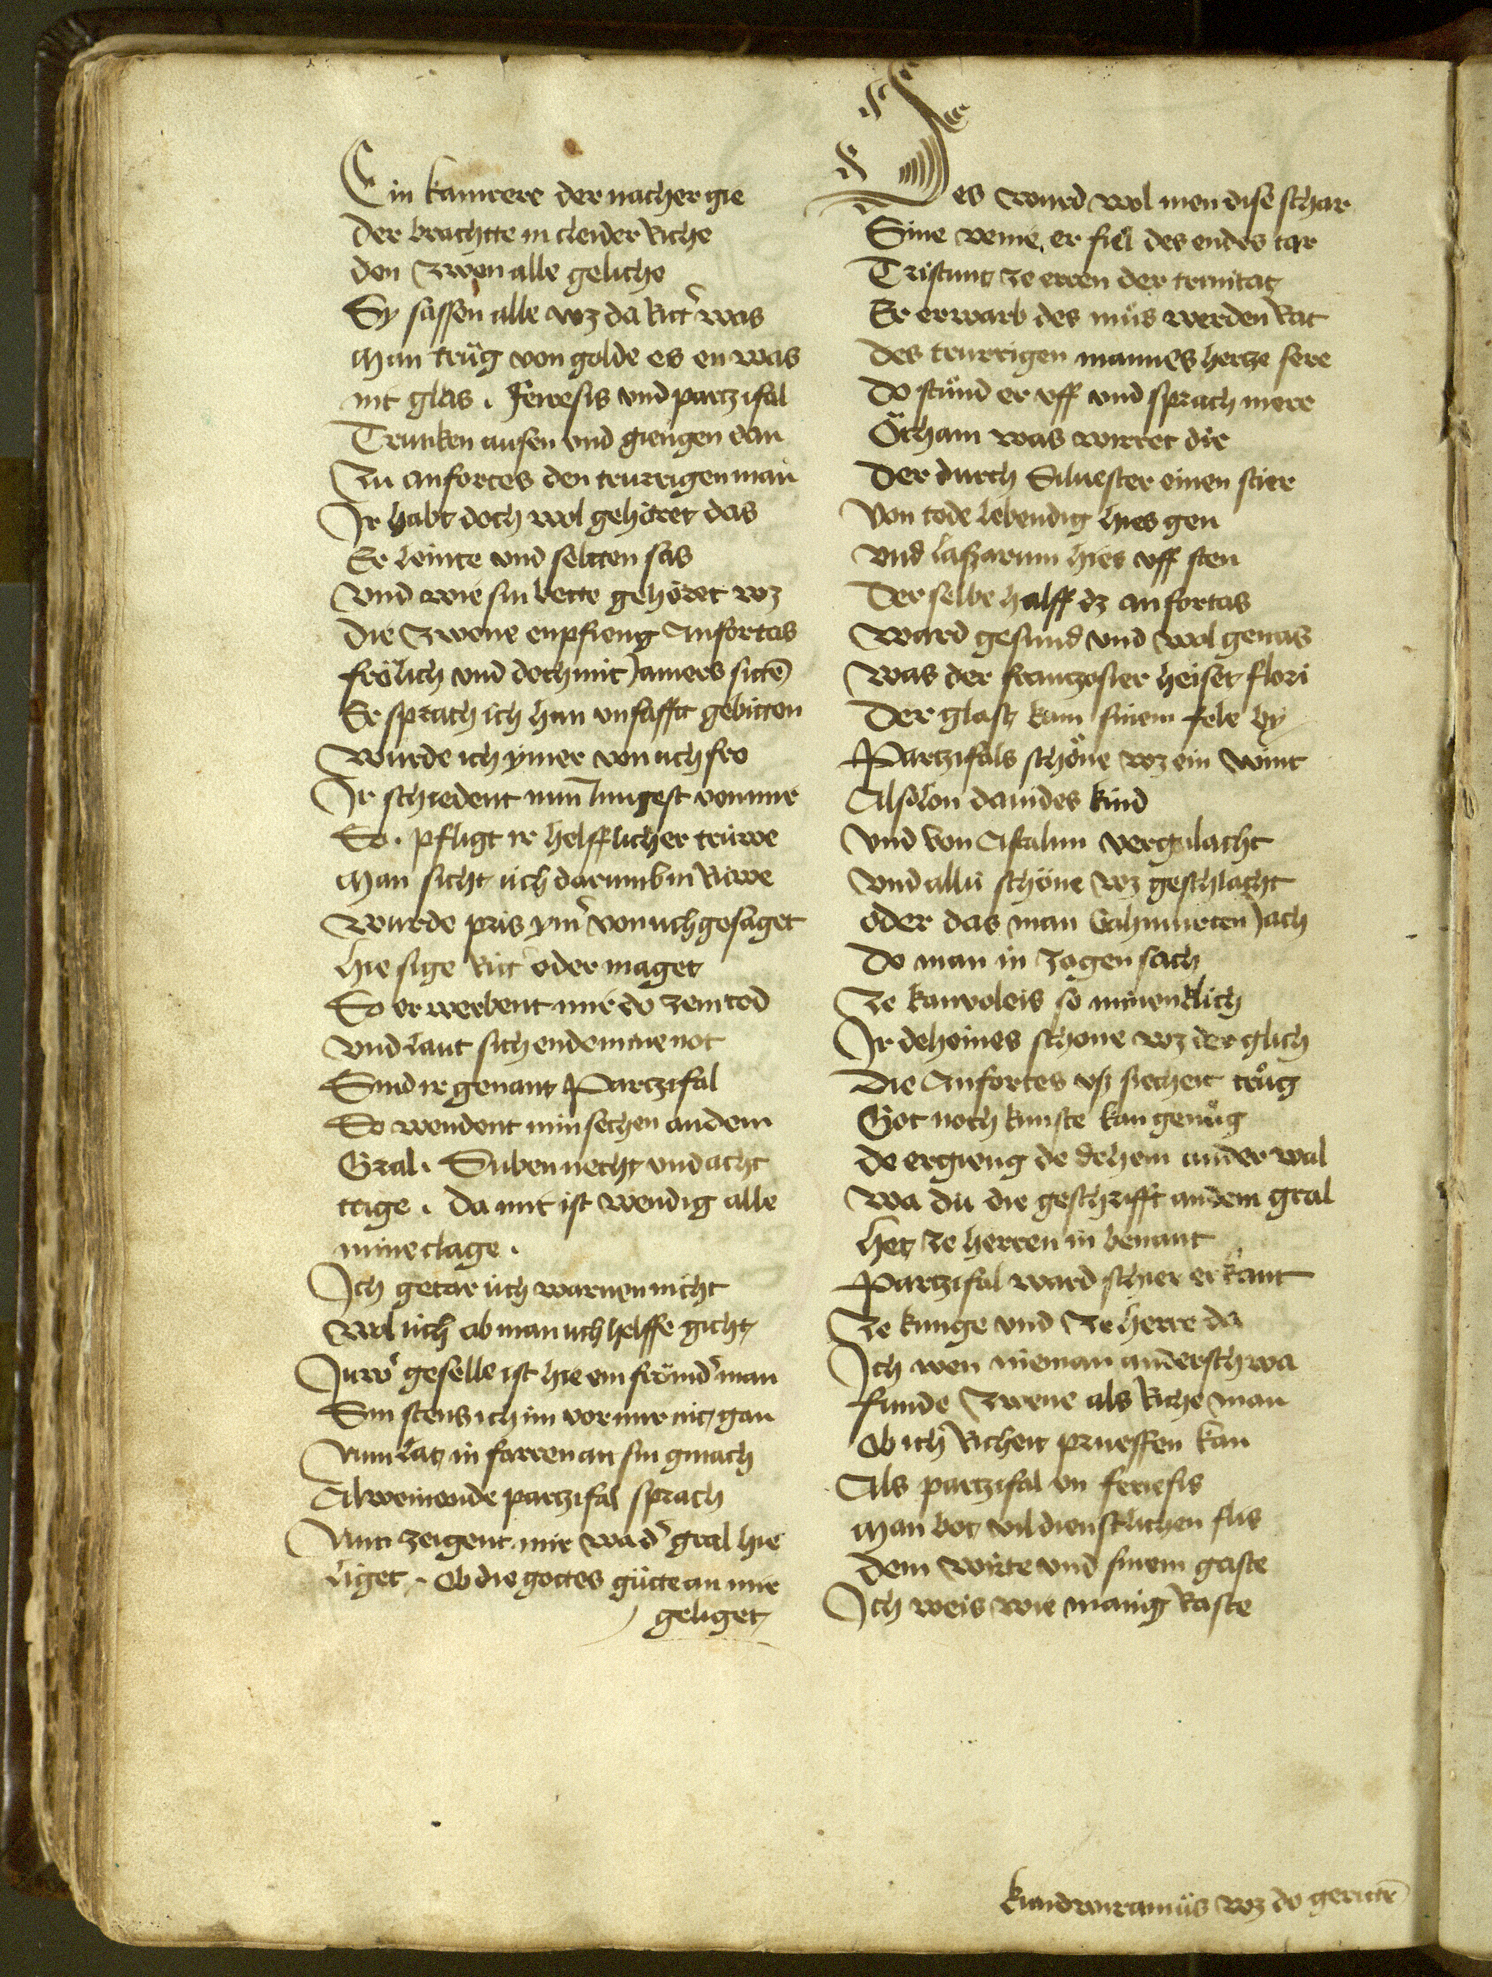 Ein kamrere der nacher gie
Der brachtte in cleider Riche
den zwen alle geliche
Sy sassen alle wz da Ritt' was
Man trůg von golde es en was
nit glas . Ferefis vnd partzifal
Trunken ausen vnd giengen dan
Zu anfortes den trurrigen man
Ir habt doch wol gehöret das
Er leinte vnd seltten sas
vnd wie sin bette gehöret wz
die zwene enpfieng Anfortas
frölich vnd doch mit Jamers sittē
Er sprach ich han vnsafft gebitten
wurde ich ymer von uch fro
Ir schiedent nun Jungest von mir
So . pfligt ir helfflicher trüwe
Man sicht üch darumb in Rüwe
wurde pris ym' von uch gesaget
hie sige Ritt' oder maget
So erwerbent mir do zem tod
vnd lant sich enden mine not
Sind ir genant Partzifal
So wendent min sechen an dem
Gral . Suben necht vnd acht
ttige . Da mit ist wendig alle
mine clage .
Ich getar üch warnen nicht
wol üch ob man uch helffe gicht
Juwr' geselle ist hie ein frömd' man
Sin stens ich im vor mir nit gan
Num lat in farren an sin gmach
Alweinende partzifal sprach
Nun zeigent mir wa d' gral hie
liget . Ob die gottes gütte an mir
geliget
Des wurd wol inen dise schar
Sine venie er fiel des endes tar
Tristunt ze erren der trinitat
Er erwarb des můs werden Rat
des trurrigen mannes hertze sere
Do stůnd er vff vnd sprach mere
Öcham was wirret die
Der durch Siluester einen stier
Von tode lebendig hies gen
vnd lassarum hies vff sten
Der selbe halff dz anfortas
Ward gesund vnd wol genas
Was der frantzosier heiset flori
Der glast kam sinem fele by
Partzifals schöne wz ein wint
Absolon dauides kind
Vnd von Ascalun vergulacht
Vnd allü schöne wz geschlacht
oder das man Gahmureten Jach
Do man in zogen sach
Ze kanvoleis so minenklich
Ir deheines schone wz der glich
Die Anfortes vss siecheit trůg
Got noch kunste kan genůg
de ergieng de dehein ander wal
wa du die geschrifft an dem gral
het ze herren in benant
Partzifal ward schier erkant
Ze kunge vnd ze herre da
Ich wen nieman anderschwa
funde zwene als Riche man
Ob ich Richeit prueffen kan
Als partzifal vn ferefis
Man bot vil dienstlichen flis
dem wirte vnd sinem gaste
Ich weis wie manig Raste
kundwiramůs wz do gerittē